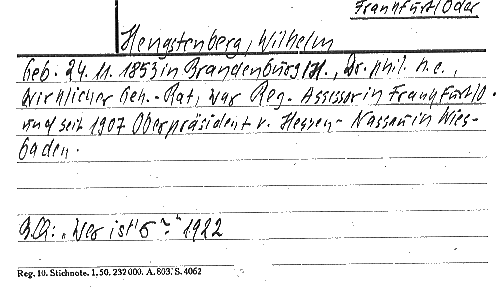 Frankfurt/Oder
Hengstenberg, Wilhelm
Geb. 24. 11. 1853 in Brandenburg/H., Dr. phil. h. c.,
Wirklicher Geh.-Rat, war Reg. Assessor in Frankfurt/O.
und seit 1907 Oberpräsident v. Hessen-Nassau in Wies-
baden.
B.Q: „Wer ist's?" 1922
Reg. 10. Stichnote. 1,50. 232 000. A. 803. S. 4062